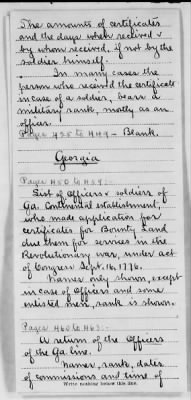 The amounts of certificates
and the days when received &
by whom received, if not by the
soldier himself.
In many cases the
person who received the certificate
in case of a soldier, bears a
military rank, mostly as an
officer.
Pages 425 to 449 - Blank.
Georgia
Pages 450 to 459:
List of Officers & soldiers of
Ga. Continental establishment,
who made application for
certificates for Bounty Land
due them for services in the
Revolutionary war, under act
of Congress Sept. 16, 1776.
Names only shown, except
in case of Officers and some
enlisted men, rank is shown.
Pages 460 to 463:
A return of the Officers
of the Ga. Line.
Names, rank, dates
of commissions and time of
Write nothing below this line.